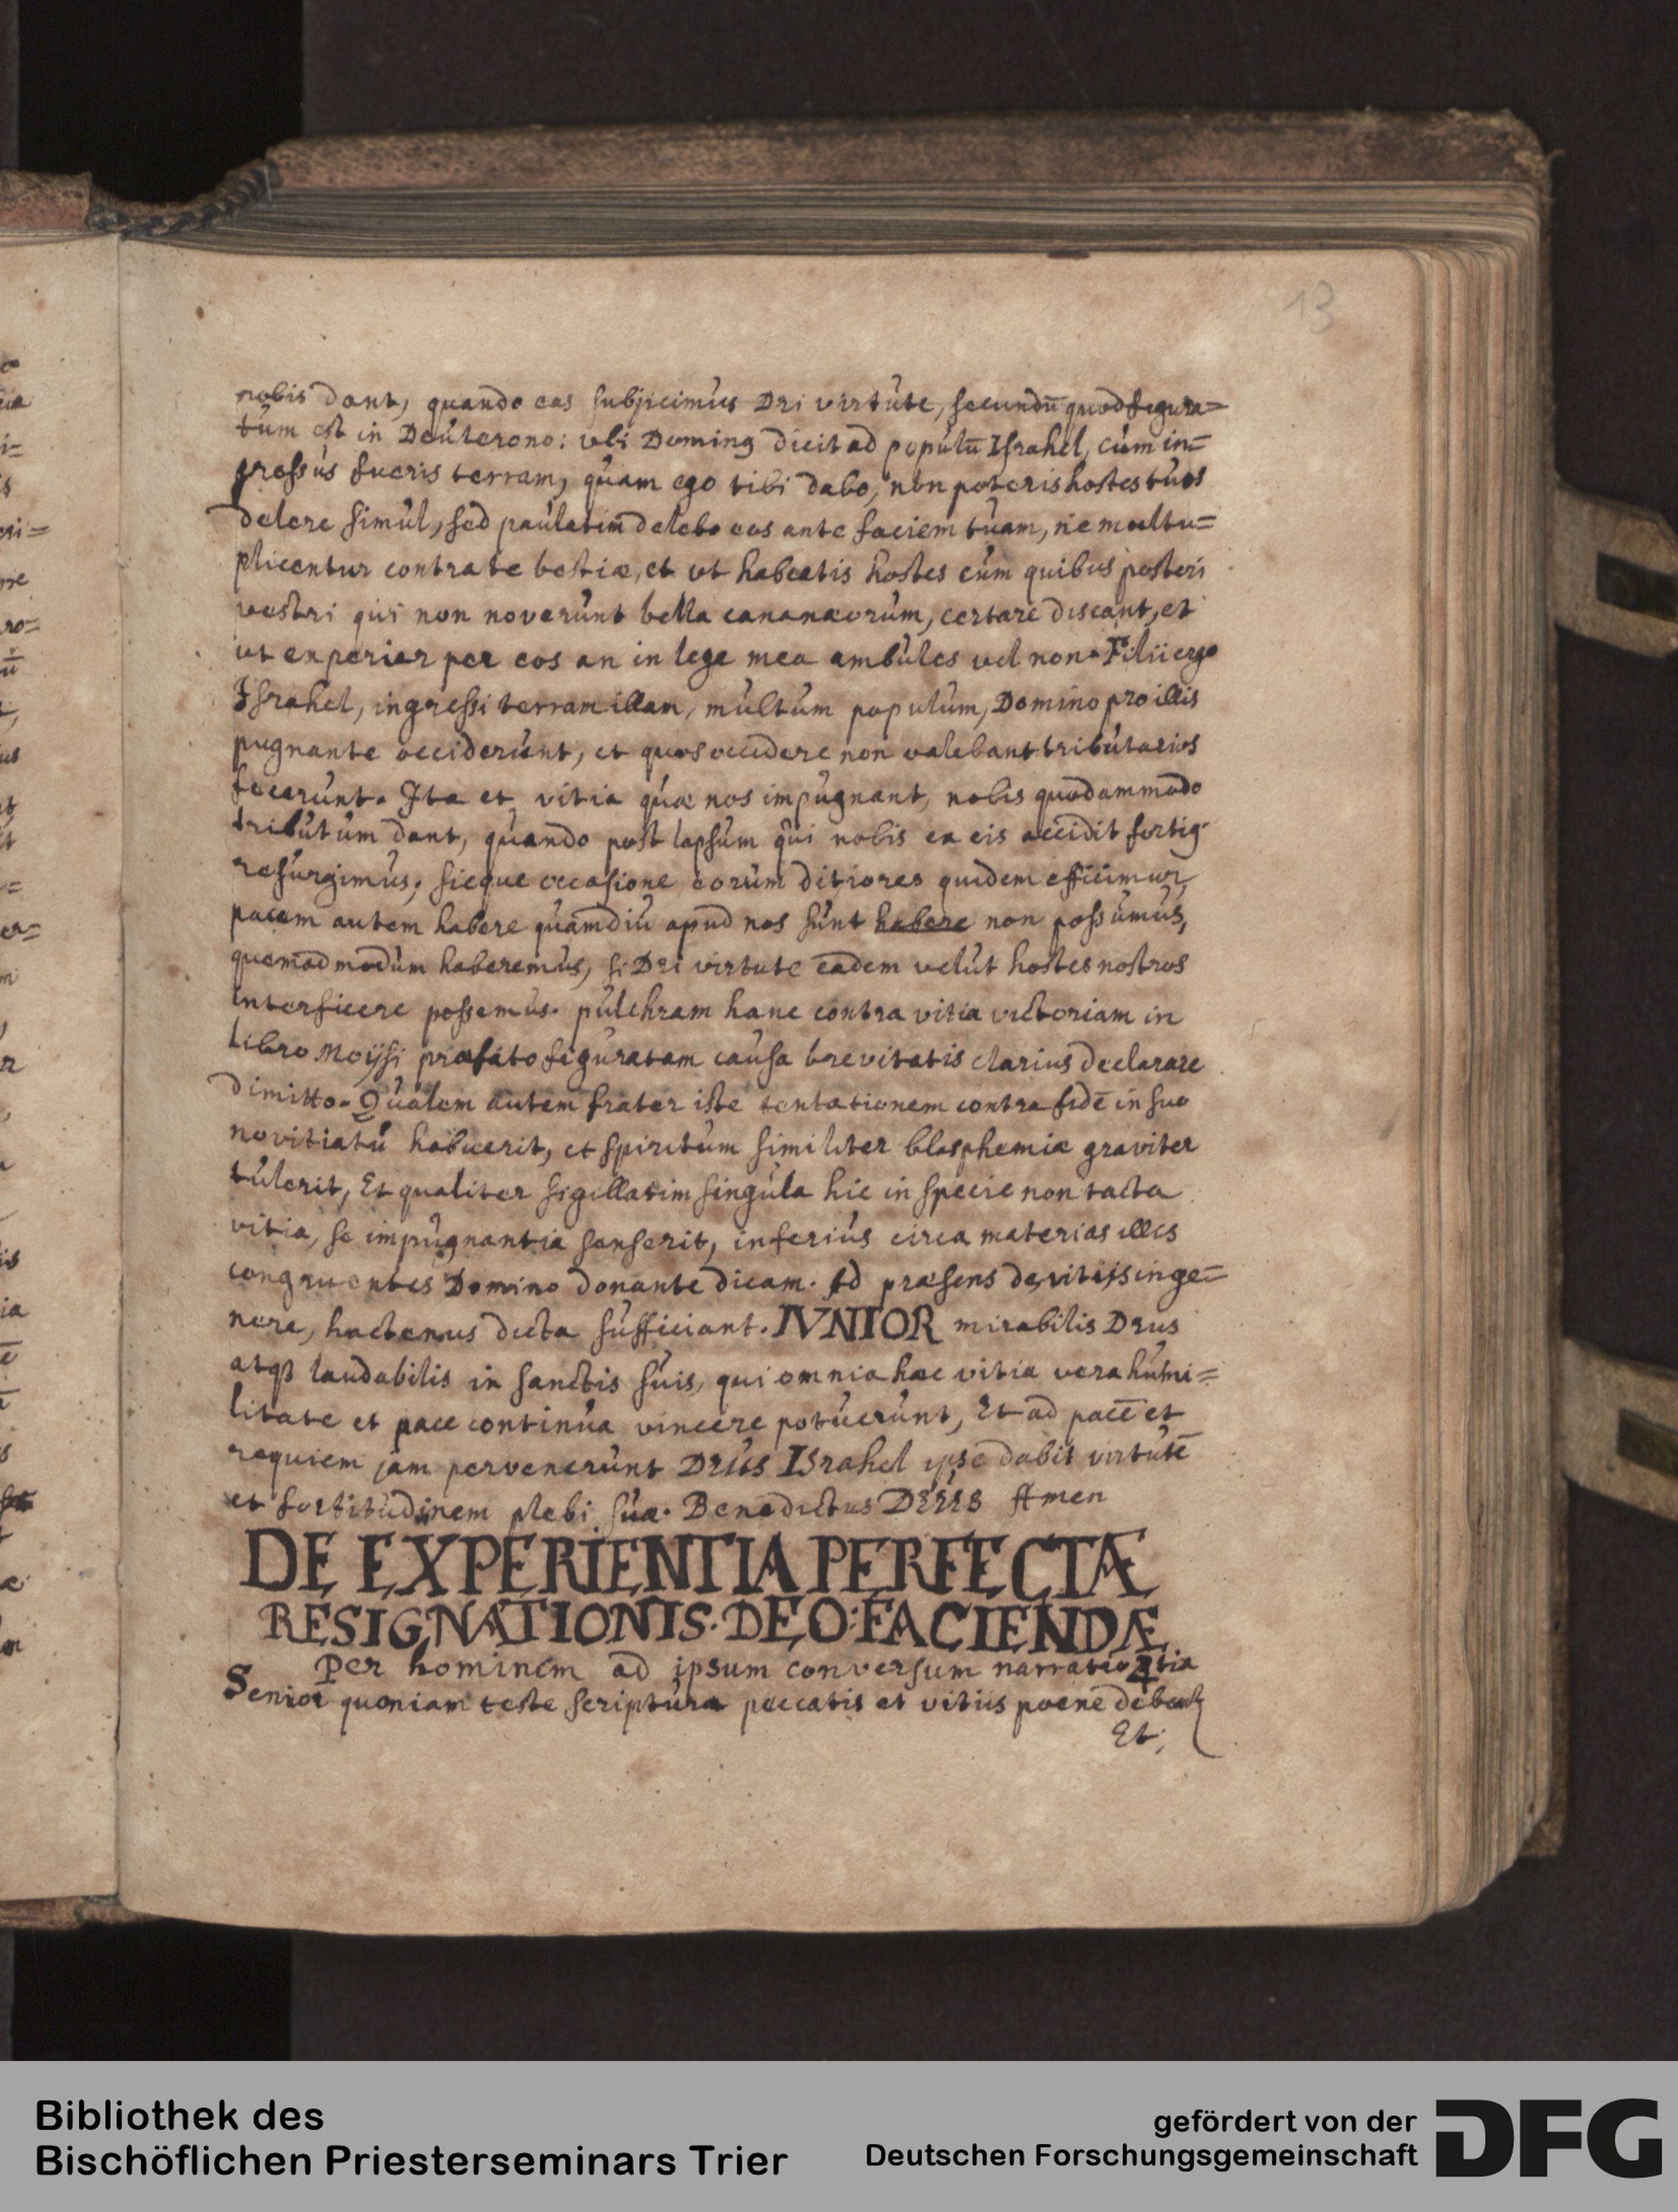 13
nobis dant, quando eas subjicimus Dei virtute, secundū quod figura=
tum est in Deuterono: ubi Dominꝰ dicit ad populū Israhel, cum in=
gressus fueris terram, quam ego tibi dabo, non poteris hostes tuos
delere simul, sed paulatim delebo eos ante faciem tuam, ne multu=
plicentur contra te bestiæ, et ut habeatis hostes cum quibus posteri
vestri qui non noverunt bella cananæorum, certare discant, et
ut experiar per eos an in lege mea ambules vel non. Filii ergo
Israhel, ingressi terram illam, multum populum, Domino pro illis
pugnante occiderunt, et quos occidere non valebant tributarios
fecerunt. Ita et vitia quæ nos impugnant, nobis quodammodo
tributum dant, quando post lapsum qui nobis ex eis accidit fortiꝰ
resurgimus; sicque occasione eorum ditiores quidem efficimur,
pacem autem habere quamdiu apud nos sunt habere non possumus,
quemadmodum haberemus, si Dei virtute eadem velut hostes nostros
interficere possemus. pulchram hanc contra vitia victoriam in
libro Moijsi præfato figuratam causa brevitatis clarius declarare
dimitto. Qualem autem frater iste tentationem contra fidē in suo
novitiatu habuerit, et spiritum similiter blasphemiæ graviter
tulerit, Et qualiter sigillatim singula hic in specie non tacta
vitia, se impugnantia senserit, inferius circa materias illis
congruentes Domino donante dicam. Ad præsens de vitijs in ge=
nere, hactenus dicta sufficiant. IVNIOR mirabilis Deus
atqꝫ laudabilis in sanctis suis, qui omnia hæc vitia vera humi=
litate et pace continua vincere potuerunt, Et ad pacē et
requiem jam pervenerunt Deus Israhel ipse dabit virtutē
et fortitudinem plebi suæ. Benedictus DEUS Amen
DE EXPERIENTIA PERFECTÆ
RESIGNATIONIS DEO FACIENDÆ
Per hominem ad ipsum conversum narratio 4tia
Senior quoniam teste scriptura peccatis et vitiis poene
Et;
Bibliothek des
Bischöflichen Priesterseminars Trier
gefördert von der
Deutschen Forschungsgemeinschaft
DFG